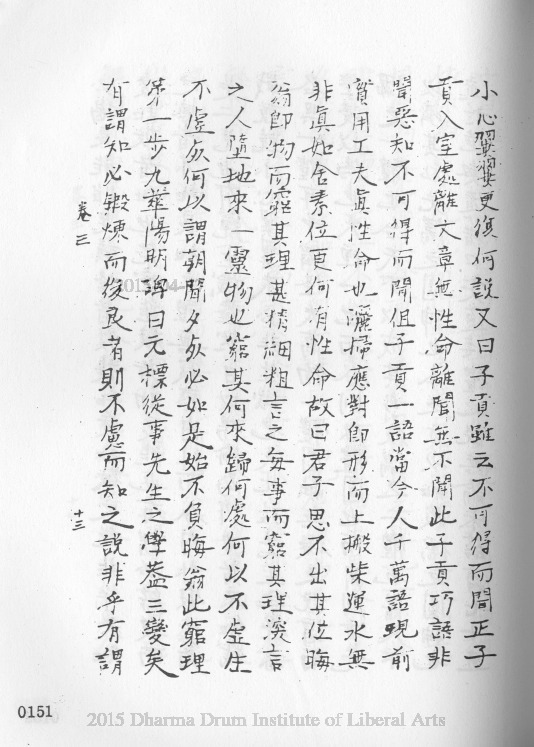 小心翼翼更復何說又曰子貢雖云不可得而聞正子
貢入室處離文章無性命離聞無不聞此子貢巧語非
聞惡知不可得而聞但子貢一語當今人千萬語現前
實用工夫眞性命也灑掃應對卽形而上搬柴運水無
非眞如舍素位更何有性命故曰君子思不出其位晦
翁卽物而窮其理甚精細粗言之每事而窮其理深言
之人墮地來一靈物也窮其何來歸何處何以不虛生
不虛死何以謂朝聞夕死必如是始不負晦翁此窮理
第一步九華陽明碑曰元標從事先生之學葢三變矣
有謂知必鍛煉而後良者則不慮而知之說非乎有謂
卷三
十三
0151
2015 Dharma Drum Institute of Liberal Arts